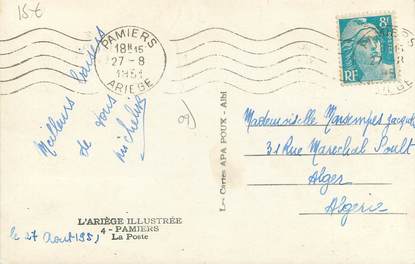 15€
PAMIERS
18H15
27-8
1951
ARIEGE
8F
POSTES
RF
Meilleurs baisers
de vous
michelin
Les Cartes APA POUX - Albi
Mademoiselle Monsempes Jacque
31 Rue Marechal Soult
Alger
Algerie
L'ARIÈGE ILLUSTRÉE
4 - PAMIERS
La Poste
le 27 Aout 1951